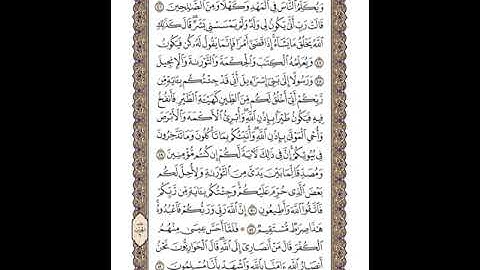 وَيُكَلِّمُ ٱلنَّاسَ فِي ٱلۡمَهۡدِ وَكَهۡلٗا وَمِنَ ٱلصَّٰلِحِينَ ٤٦
قَالَتۡ رَبِّ أَنَّىٰ يَكُونُ لِي وَلَدٞ وَلَمۡ يَمۡسَسۡنِي بَشَرٞۖ قَالَ كَذَٰلِكِ
ٱللَّهُ يَخۡلُقُ مَا يَشَآءُۚ إِذَا قَضَىٰٓ أَمۡرٗا فَإِنَّمَا يَقُولُ لَهُۥ كُن فَيَكُونُ
٤٧ وَيُعَلِّمُهُ ٱلۡكِتَٰبَ وَٱلۡحِكۡمَةَ وَٱلتَّوۡرَىٰةَ وَٱلۡإِنجِيلَ
٤٨ وَرَسُولًا إِلَىٰ بَنِيٓ إِسۡرَٰٓءِيلَ أَنِّي قَدۡ جِئۡتُكُم بِـَٔايَةٖ مِّن
رَّبِّكُمۡ أَنِّيٓ أَخۡلُقُ لَكُم مِّنَ ٱلطِّينِ كَهَيۡـَٔةِ ٱلطَّيۡرِ فَأَنفُخُ
فِيهِ فَيَكُونُ طَيۡرَۢا بِإِذۡنِ ٱللَّهِۖ وَأُبۡرِئُ ٱلۡأَكۡمَهَ وَٱلۡأَبۡرَصَ
وَأُحۡيِ ٱلۡمَوۡتَىٰ بِإِذۡنِ ٱللَّهِۖ وَأُنَبِّئُكُم بِمَا تَأۡكُلُونَ وَمَا تَدَّخِرُونَ
فِي بُيُوتِكُمۡۚ إِنَّ فِي ذَٰلِكَ لَأٓيَةٗ لَّكُمۡ إِن كُنتُم مُّؤۡمِنِينَ ٤٩
وَمُصَدِّقٗا لِّمَا بَيۡنَ يَدَيَّ مِنَ ٱلتَّوۡرَىٰةِ وَلِأُحِلَّ لَكُم
بَعۡضَ ٱلَّذِي حُرِّمَ عَلَيۡكُمۡۚ وَجِئۡتُكُم بِـَٔايَةٖ مِّن رَّبِّكُمۡ
فَٱتَّقُواْ ٱللَّهَ وَأَطِيعُونِ ٥٠ إِنَّ ٱللَّهَ رَبِّي وَرَبُّكُمۡ فَٱعۡبُدُوهُۚ
هَٰذَا صِرَٰطٞ مُّسۡتَقِيمٞ ٥١ ۞ فَلَمَّآ أَحَسَّ عِيسَىٰ مِنۡهُمُ
ٱلۡكُفۡرَ قَالَ مَنۡ أَنصَارِيٓ إِلَى ٱللَّهِۖ قَالَ ٱلۡحَوَارِيُّونَ نَحۡنُ
أَنصَارُ ٱللَّهِ ءَامَنَّا بِٱللَّهِ وَٱشۡهَدۡ بِأَنَّا مُسۡلِمُونَ ٥٢